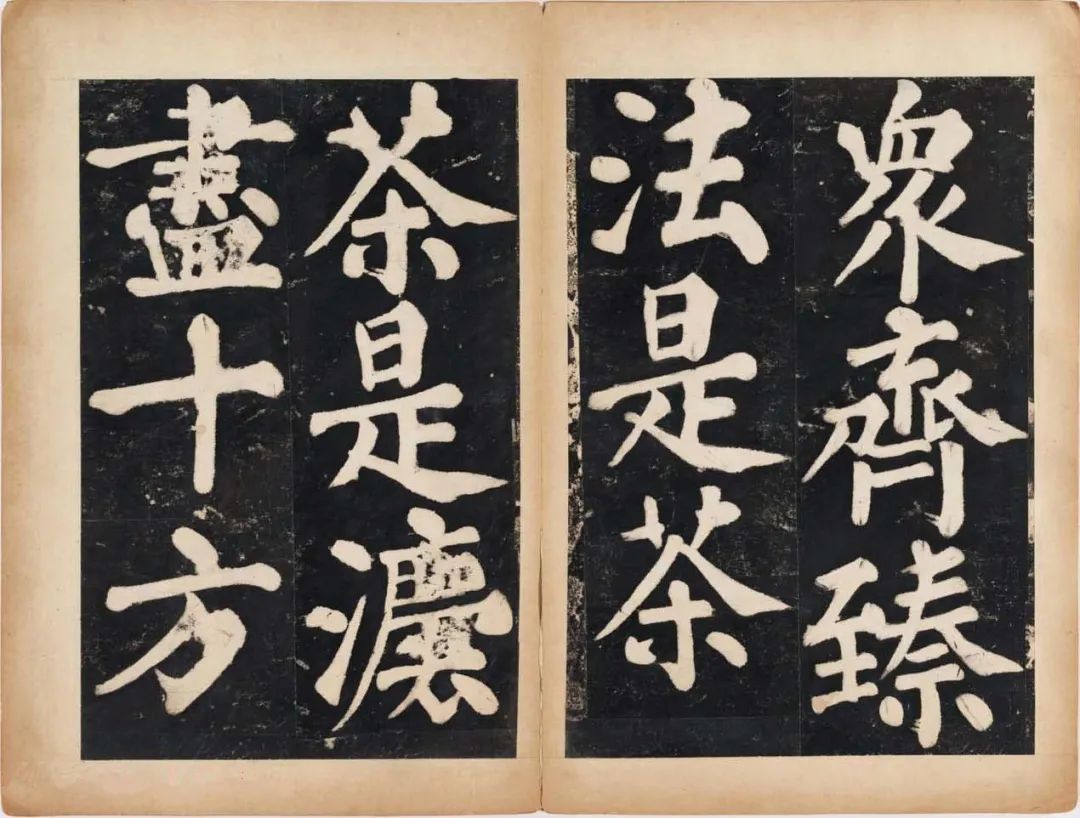 眾齊臻
法是茶
茶是濃
盡十方